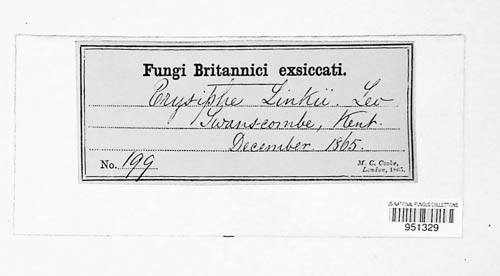 Fungi Britannici exsiccati.
Erysiphe Linkii. Lev
Swanscombe, Kent.
December 1865.
No. 199
M. C. Cooke,
London, 1865.
US NATIONAL FUNGUS COLLECTIONS
951329